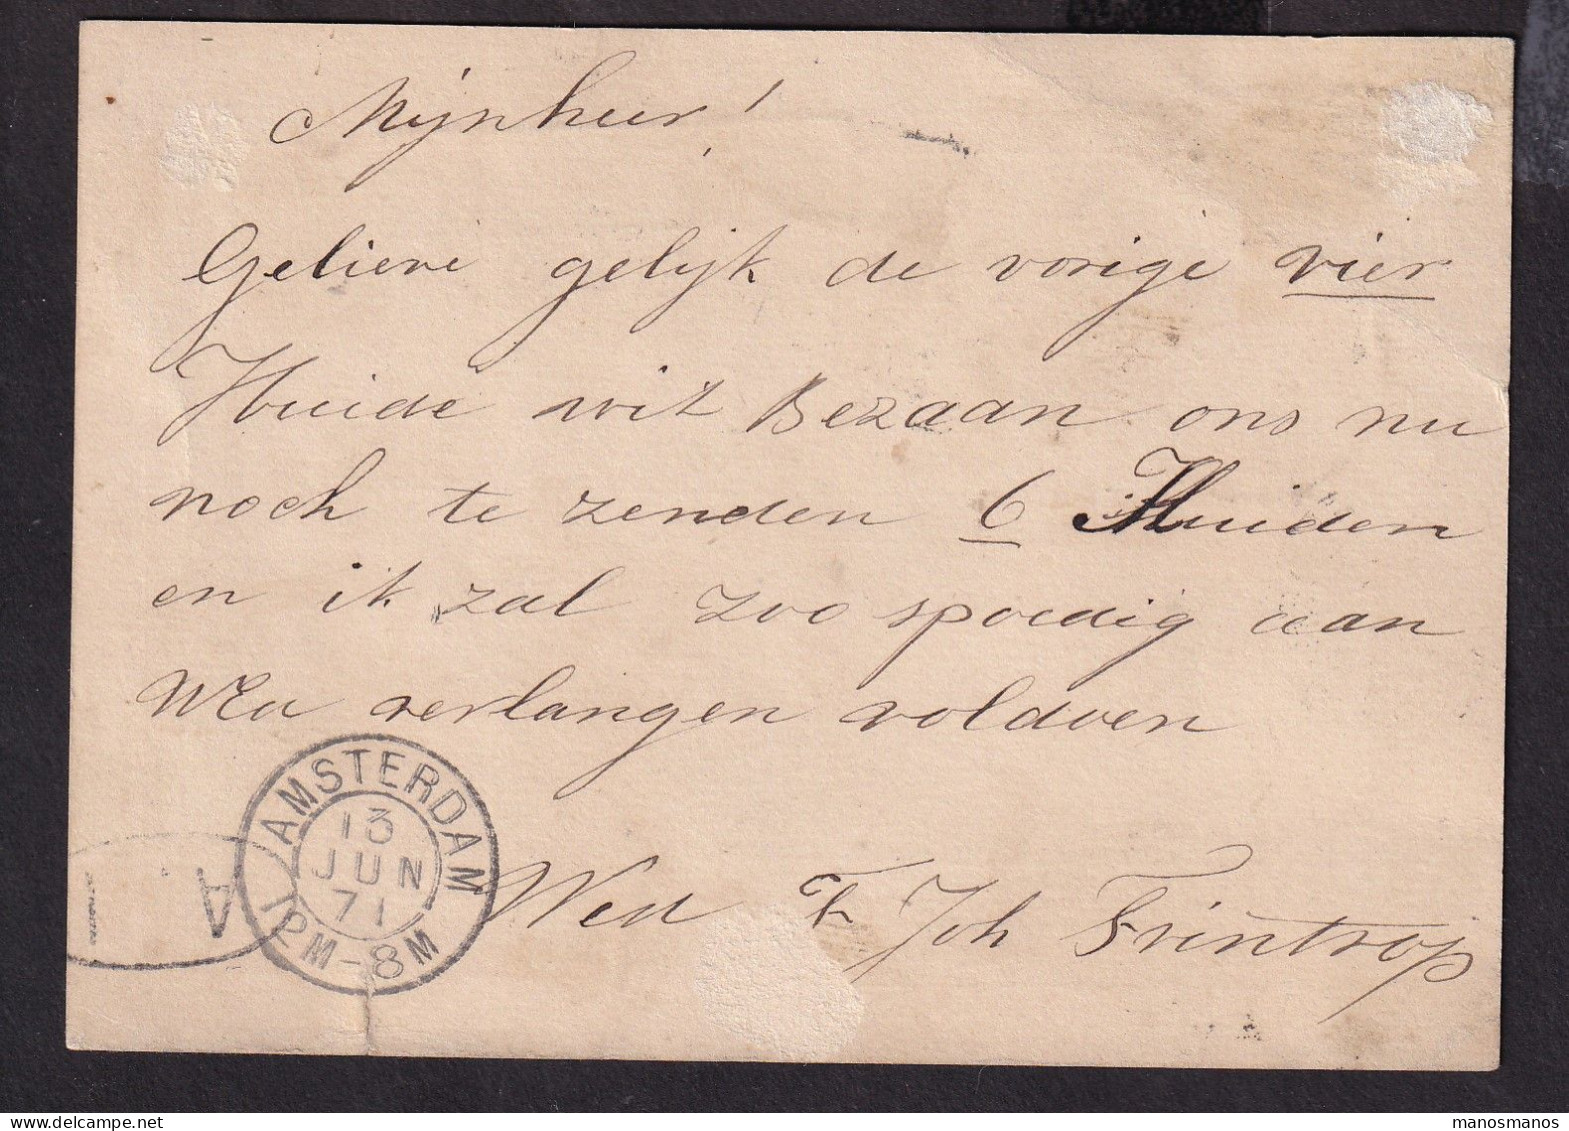 Mynheer!
Gelieve gelijk de vorige vier
Huide wit Bezaan ons nu
noch te zenden 6 Huiden
en ik zal zoo spoedig aan
WEu verlangen voldoen
Wed Joh Frintrop
AMSTERDAM
13
JUN
71
12M-8M
A
manosmanos